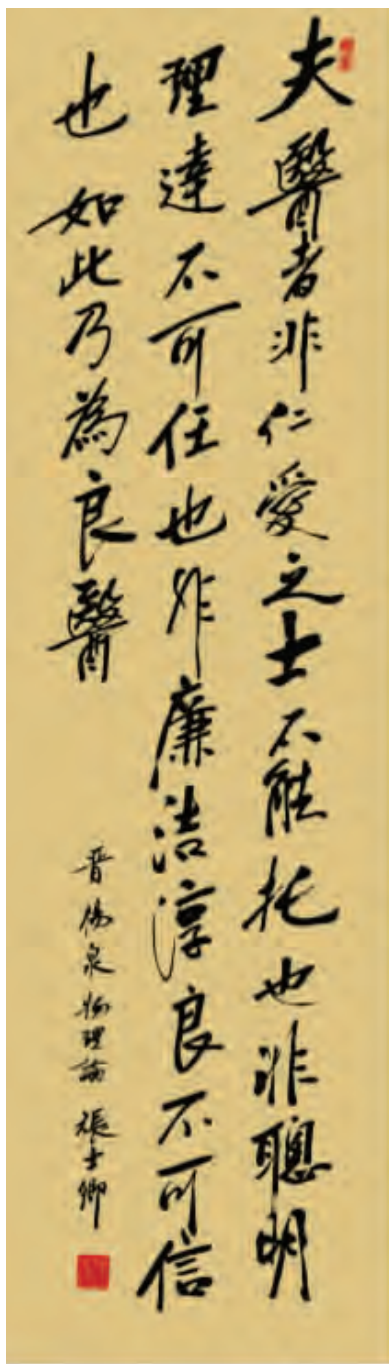 夫醫者非仁愛之士不能托也非聰明
理達不可任也非廉洁淳良不可信
也如此乃為良醫
晋傷泉物理論 張士卿